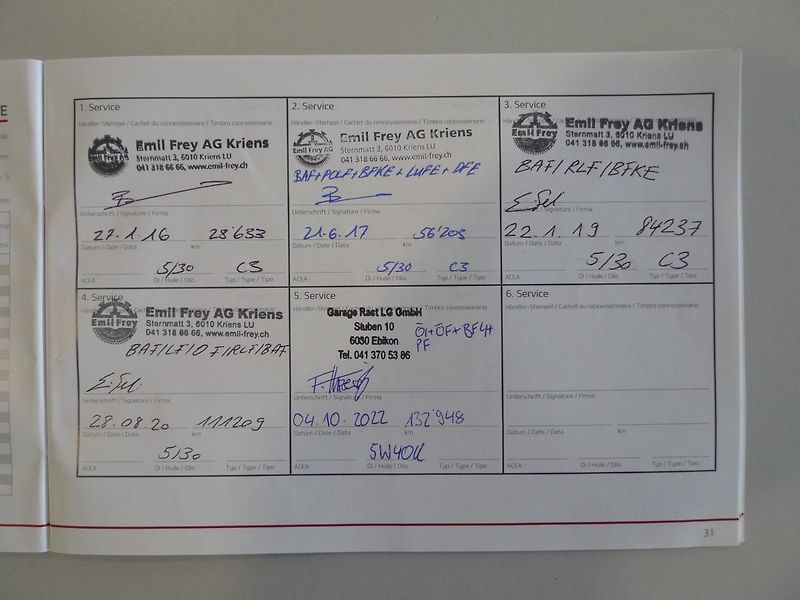 E
1. Service
Händler-Stempel / Cachet du concessionnaire / Timbro concessionario
Emil Frey AG Kriens
Sternmatt 3, 6010 Kriens LU
041 318 66 66, www.emil-frey.ch
Unterschrift / Signature / Firma
27.1.16 28'633
Datum / Date / Data km
5/30 C3
ACEA Öl / Huile / Olio Typ / Type / Tipo
2. Service
Händler-Stempel / Cachet du concessionnaire / Timbro concessionario
Emil Frey AG Emil Frey AG Kriens
Sternmatt 3, 6010 Kriens LU
041 318 66 66, www.emil-frey.ch
BAF+POLF+BFKE+LUFE+OFE
Unterschrift / Signature / Firma
21.6.17 56'203
Datum / Date / Data km
5/30 C3
ACEA Öl / Huile / Olio Typ / Type / Tipo
3. Service
Händler-Stempel / Cachet du concessionnaire / Timbro concessionario
Emil Frey Emil Frey AG Kriens
Sternmatt 3, 6010 Kriens LU
041 318 66 66, www.emil-frey.ch
BAF/RLF/BFKE
Unterschrift / Signature / Firma
22.1.19 84237
Datum / Date / Data km
5/30 C3
ACEA Öl / Huile / Olio Typ / Type / Tipo
4. Service
Emil Frey Emil Frey AG Kriens
Sternmatt 3, 6010 Kriens LU
041 318 66 66, www.emil-frey.ch
Unterschrift / Signature / Firma
28.08.20 111209
Datum / Date / Data km
5/30
ACEA Öl / Huile / Olio Typ / Type / Tipo
5. Service
Garage Rast LG GmbH
Stuben 10
6030 Ebikon
Tel. 041 370 53 86
Öl+ÖF+BF4+
PF
Unterschrift / Signature / Firma
04.10.2022 132'948
Datum / Date / Data km
5W40
ACEA Öl / Huile / Olio Typ / Type / Tipo
6. Service
Händler-Stempel / Cachet du concessionnaire / Timbro concessionario
Unterschrift / Signature / Firma
Datum / Date / Data km
ACEA Öl / Huile / Olio Typ / Type / Tipo
31